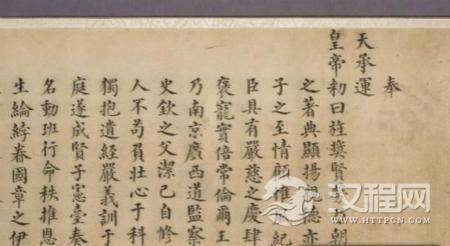 奉
天承運
皇帝勑曰旌奬賢朝
之著典顯揚親德亦
子之至情顧惟紀
臣具有嚴慈之慶肆
褒寵實倍常倫爾王
乃南京廣西道監察
史欽之父潔已自修
人不苟員壯心于科
獨抱遺經嚴義訓于
庭遂成賢子憲臺奏
名動班行命秩推恩
生綸綍眷國章之伊
汉程网
WWW.HTTPCN.COM